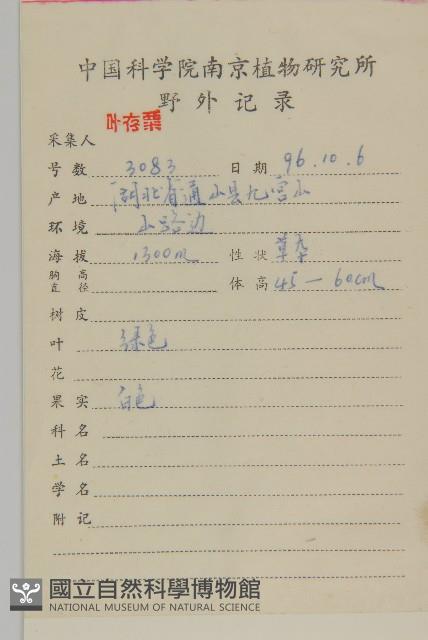 中国科学院南京植物研究所
野外记录
采集人 叶存粟
号数 3083 日期 96.10.6
产地 湖北省通山县九宫山
环境 山路边
海拔 1300m 性状 草本
胸高直径 体高 45—60cm
树皮
叶 绿色
花
果实 白色
科名
土名
学名
附记
國立自然科學博物館
NATIONAL MUSEUM OF NATURAL SCIENCE